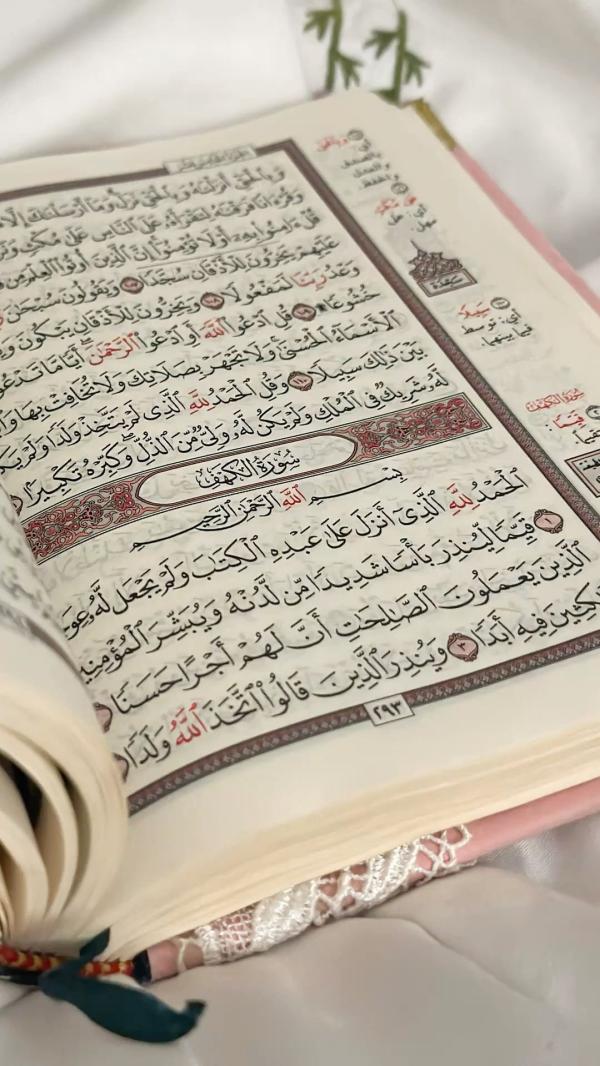 وَبِٱلْحَقِّ أَنزَلْنَٰهُ وَبِٱلْحَقِّ نَزَلَ وَمَآ أَرْسَلْنَٰكَ إِلَّا
وَقُرْءَانًا فَرَقْنَٰهُ لِتَقْرَأَهُۥ عَلَى ٱلنَّاسِ عَلَىٰ مُكْثٍ
قُلْ ءَامِنُوا۟ بِهِۦٓ أَوْ لَا تُؤْمِنُوٓا۟ إِنَّ ٱلَّذِينَ أُوتُوا۟ ٱلْعِلْمَ مِن
عَلَيْهِمْ يَخِرُّونَ لِلْأَذْقَانِ سُجَّدًا ١٠٧ وَيَقُولُونَ سُبْحَٰنَ
وَعْدُ رَبِّنَا لَمَفْعُولًا ١٠٨ وَيَخِرُّونَ لِلْأَذْقَانِ يَبْكُونَ
خُشُوعًا ١٠٩ قُلِ ٱدْعُوا۟ ٱللَّهَ أَوِ ٱدْعُوا۟ ٱلرَّحْمَٰنَ أَيًّا مَّا تَدْعُوا۟
ٱلْأَسْمَآءُ ٱلْحُسْنَىٰ وَلَا تَجْهَرْ بِصَلَاتِكَ وَلَا تُخَافِتْ بِهَا
بَيْنَ ذَٰلِكَ سَبِيلًا ١١٠ وَقُلِ ٱلْحَمْدُ لِلَّهِ ٱلَّذِى لَمْ يَتَّخِذْ وَلَدًا وَلَمْ
لَّهُۥ شَرِيكٌ فِى ٱلْمُلْكِ وَلَمْ يَكُن لَّهُۥ وَلِىٌّ مِّنَ ٱلذُّلِّ وَكَبِّرْهُ تَكْبِيرًۢا
سُورَةُ الكَهْفِ
بِسْمِ ٱللَّهِ ٱلرَّحْمَٰنِ ٱلرَّحِيمِ
ٱلْحَمْدُ لِلَّهِ ٱلَّذِىٓ أَنزَلَ عَلَىٰ عَبْدِهِ ٱلْكِتَٰبَ وَلَمْ يَجْعَل لَّهُۥ
١ قَيِّمًا لِّيُنذِرَ بَأْسًا شَدِيدًا مِّن لَّدُنْهُ وَيُبَشِّرَ ٱلْمُؤْمِنِينَ
ٱلَّذِينَ يَعْمَلُونَ ٱلصَّٰلِحَٰتِ أَنَّ لَهُمْ أَجْرًا حَسَنًا
فِيهِ أَبَدًا ٣ وَيُنذِرَ ٱلَّذِينَ قَالُوا۟ ٱتَّخَذَ ٱللَّهُ وَلَدًا
٢٩٣
سَجْدَة
سَبِيلًا
أي: توسط
فيما بينهما.
سُورَةُ الكَهْفِ
قَيِّمًا